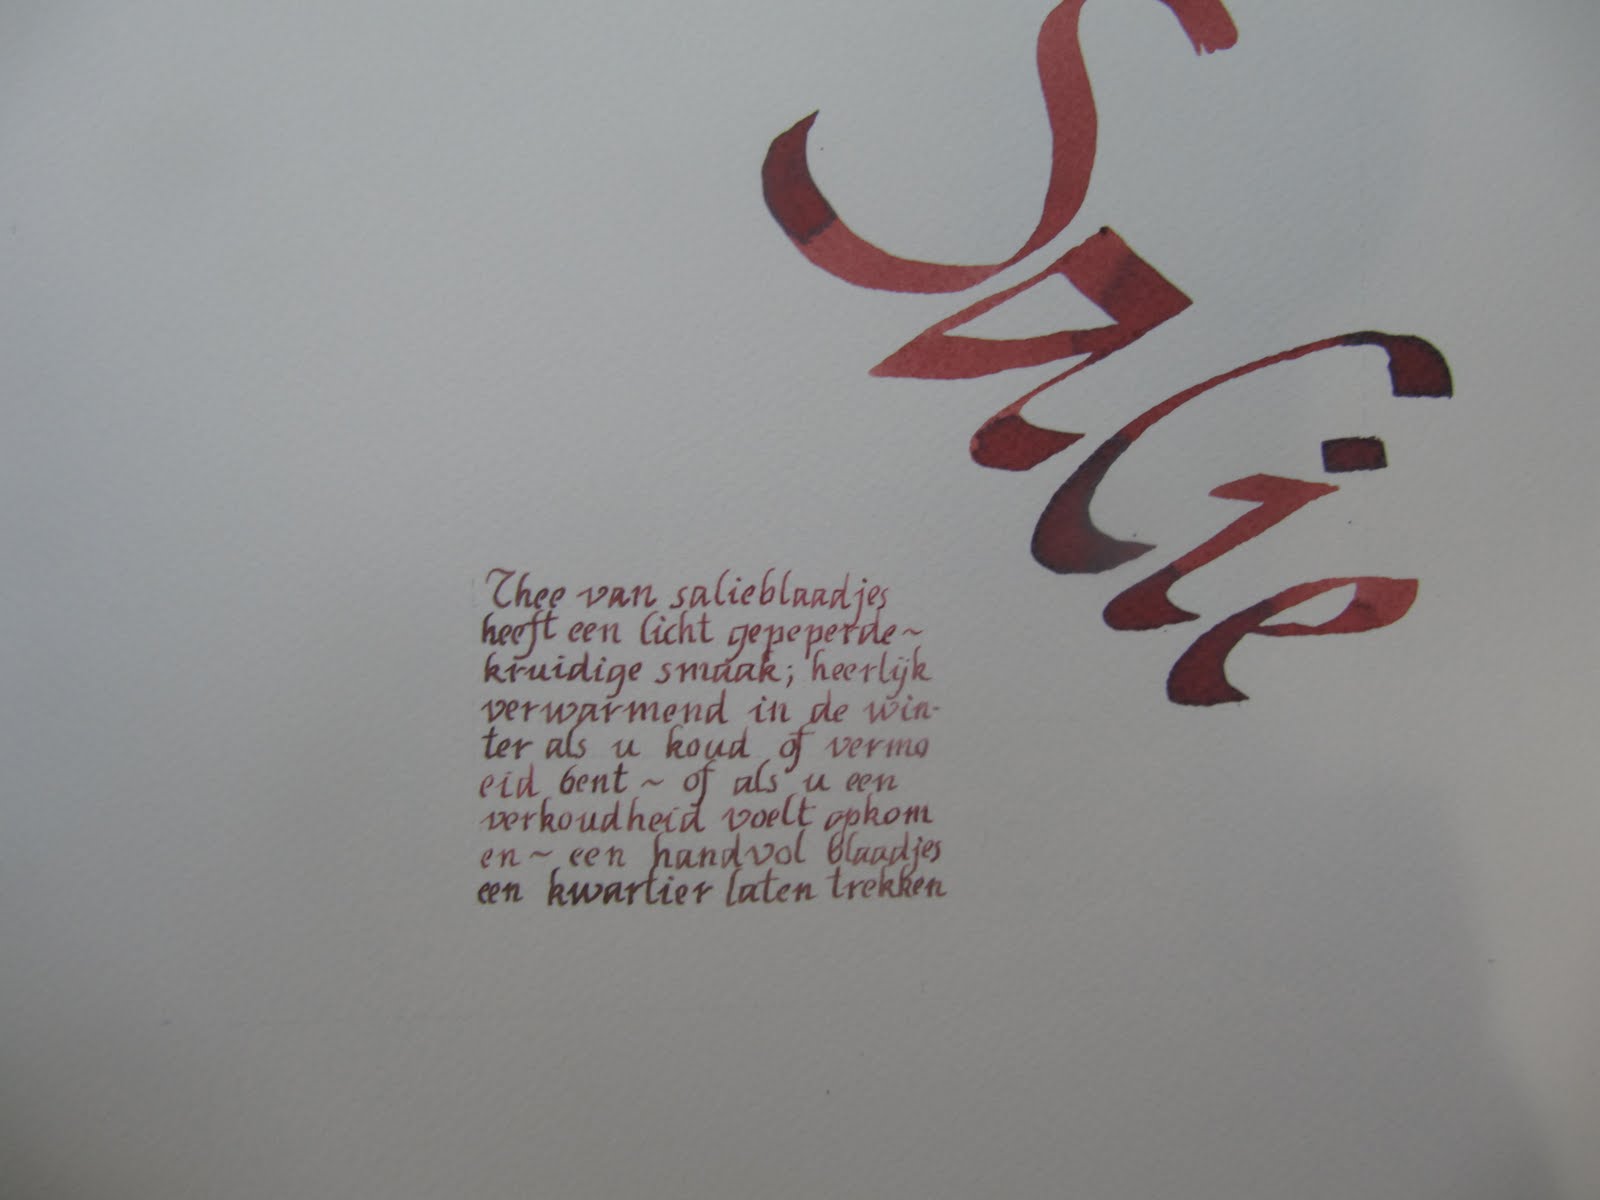 Salie
Thee van salieblaadjes
heeft een licht gepeperde~
kruidige smaak; heerlijk
verwarmend in de win-
ter als u koud of vermo
eid bent ~ of als u een
verkoudheid voelt opkom
en ~ een handvol blaadjes
een kwartier laten trekken